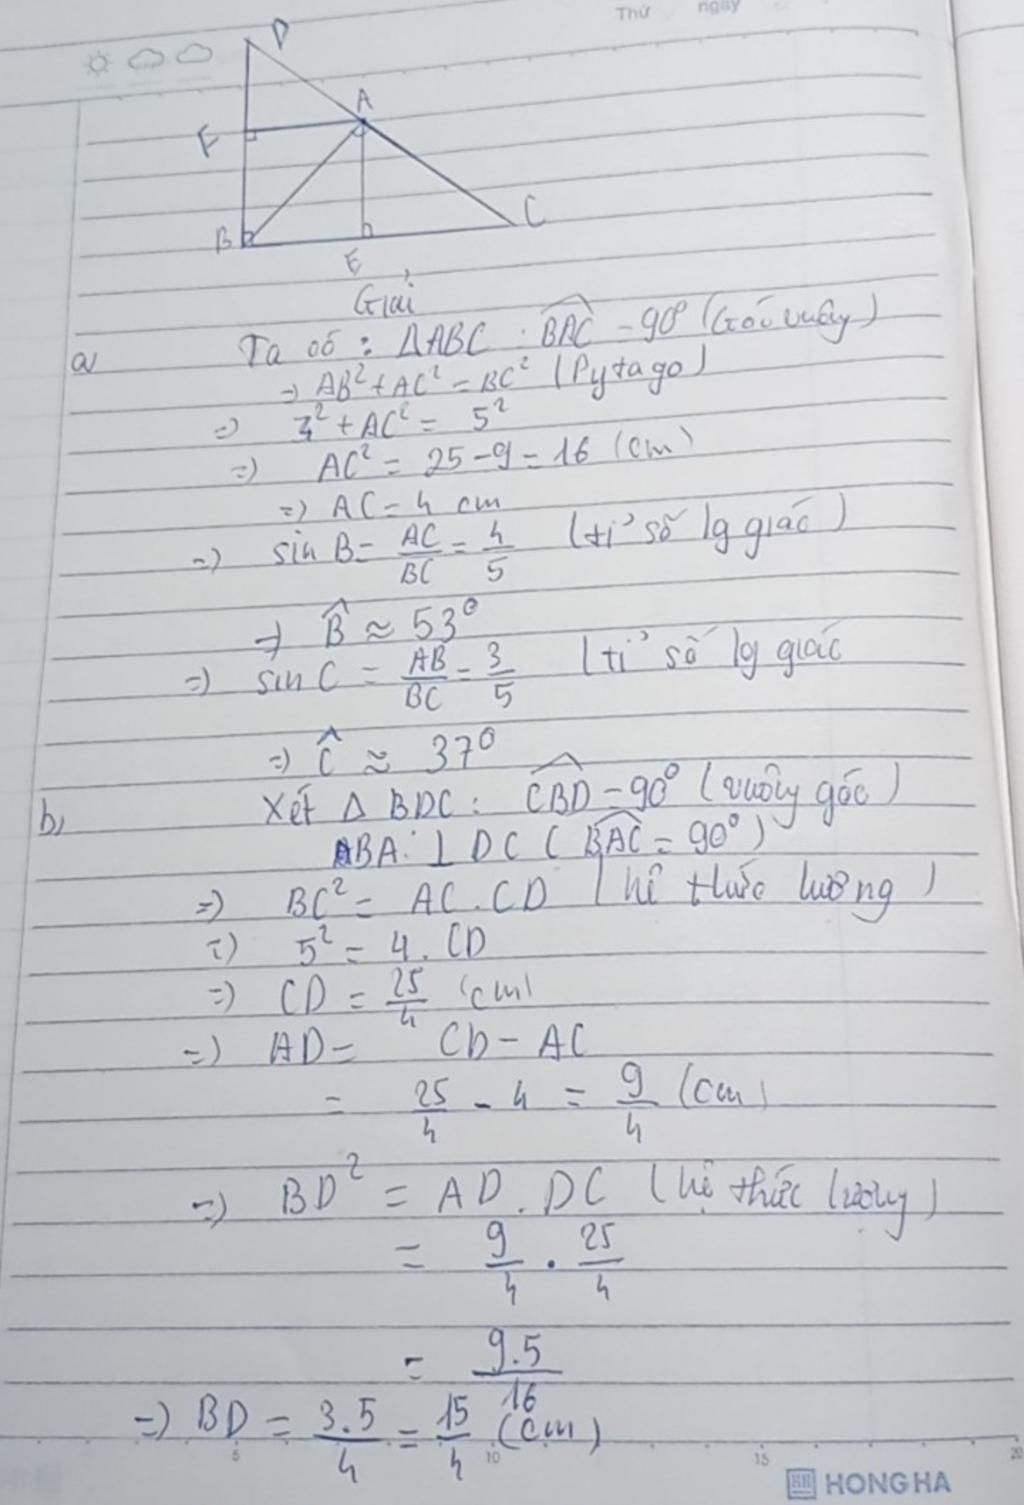 Thứ ngày
D
A
F
B
E
C
Giải
a) Ta có : ΔABC : BAC = 90° (Góc vuông)
=> AB² + AC² = BC² (Pytago)
=> 3² + AC² = 5²
=> AC² = 25 - 9 = 16 (cm)
=> AC = 4 cm
=> sin B = AC/BC = 4/5 (tỉ số lg giác)
=> B̂ ≈ 53°
=> sin C = AB/BC = 3/5 (tỉ số lg giác
=> Ĉ ≈ 37°
b, Xét Δ BDC : CBD = 90° (vuông góc)
BA ⊥ DC (BAC = 90°)
=> BC² = AC . CD (hệ thức lượng)
=> 5² = 4 . CD
=> CD = 25/4 (cm)
=> AD = CD - AC
= 25/4 - 4 = 9/4 (cm)
=> BD² = AD . DC (hệ thức lượng)
= 9/4 . 25/4
= 9.5/16
=> BD = 3.5/4 = 15/4 (cm)
5 10 15 20
HH HONG HA